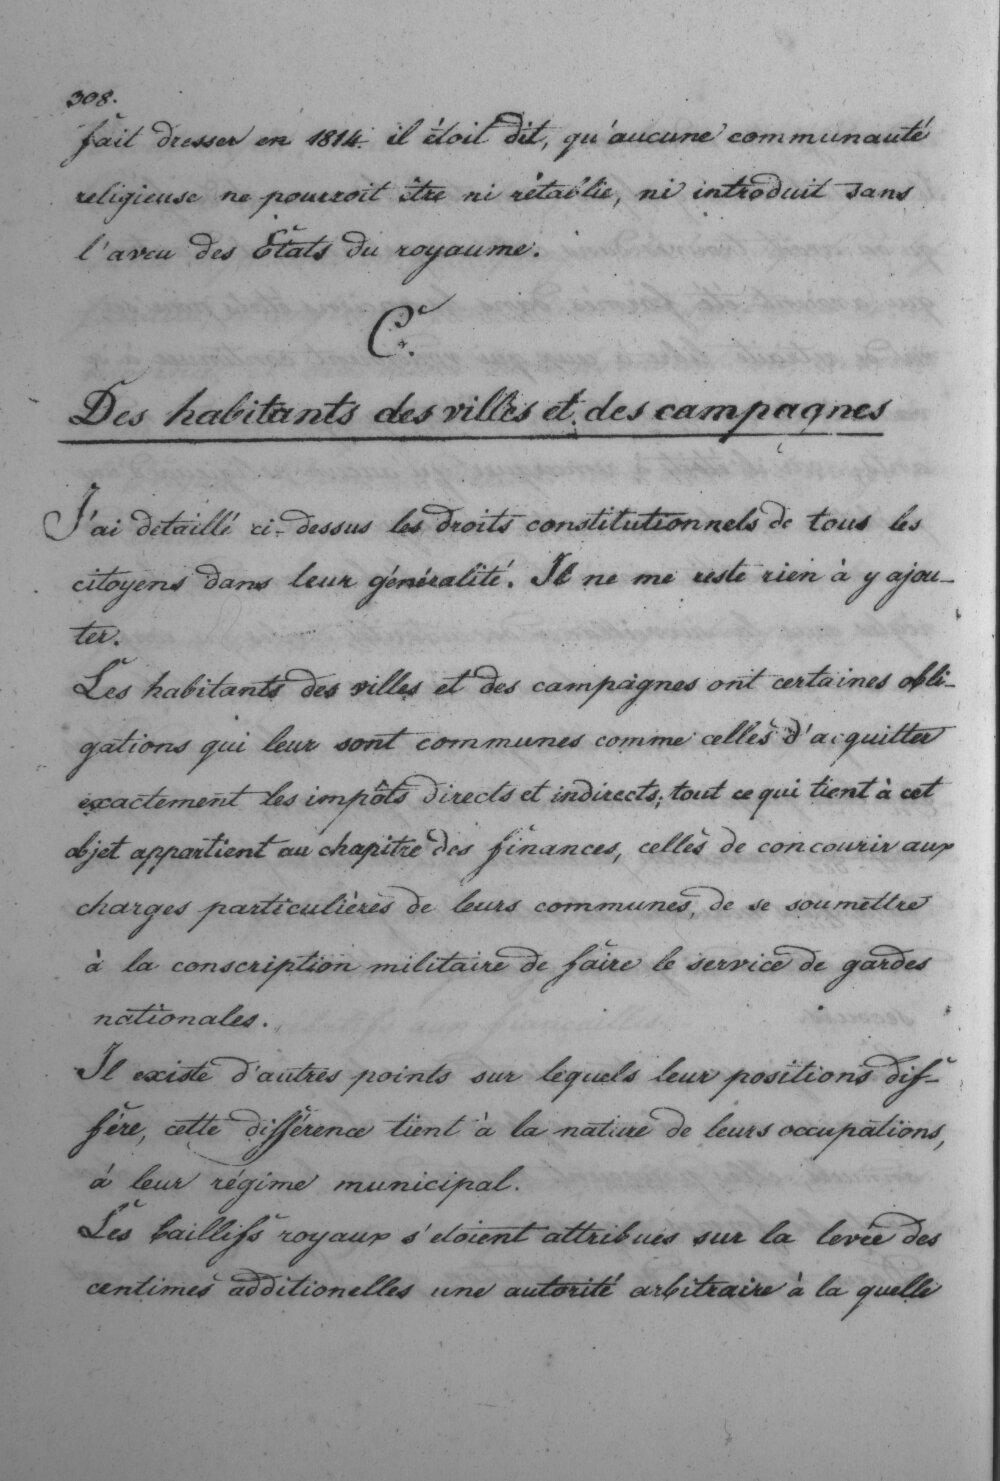 308.
fait dresser en 1814 il étoit dit, qu'aucune communauté
religieuse ne pourroit être ni rétablie, ni introduit sans
l'aveu des Etats du royaume.
C.
Des habitants des villes et des campagnes
J'ai détaillé ci-dessus les droits constitutionnels de tous les
citoyens dans leur généralité. Il ne me reste rien à y ajou-
ter.
Les habitants des villes et des campagnes ont certaines obli-
gations qui leur sont communes comme celles d'acquitter
exactement les impôts directs et indirects; tout ce qui tient à cet
objet appartient au chapitre des finances, celles de concourir aux
charges particulières de leurs communes, de se soumettre
à la conscription militaire de faire le service de gardes
nationales.
Il existe d'autres points sur lequels leur positions dif-
fère, cette différence tient à la nature de leurs occupations,
à leur régime municipal.
Les baillifs royaux s'etoient attribués sur la levée des
centimes additionelles une autorité arbitraire à la quelle